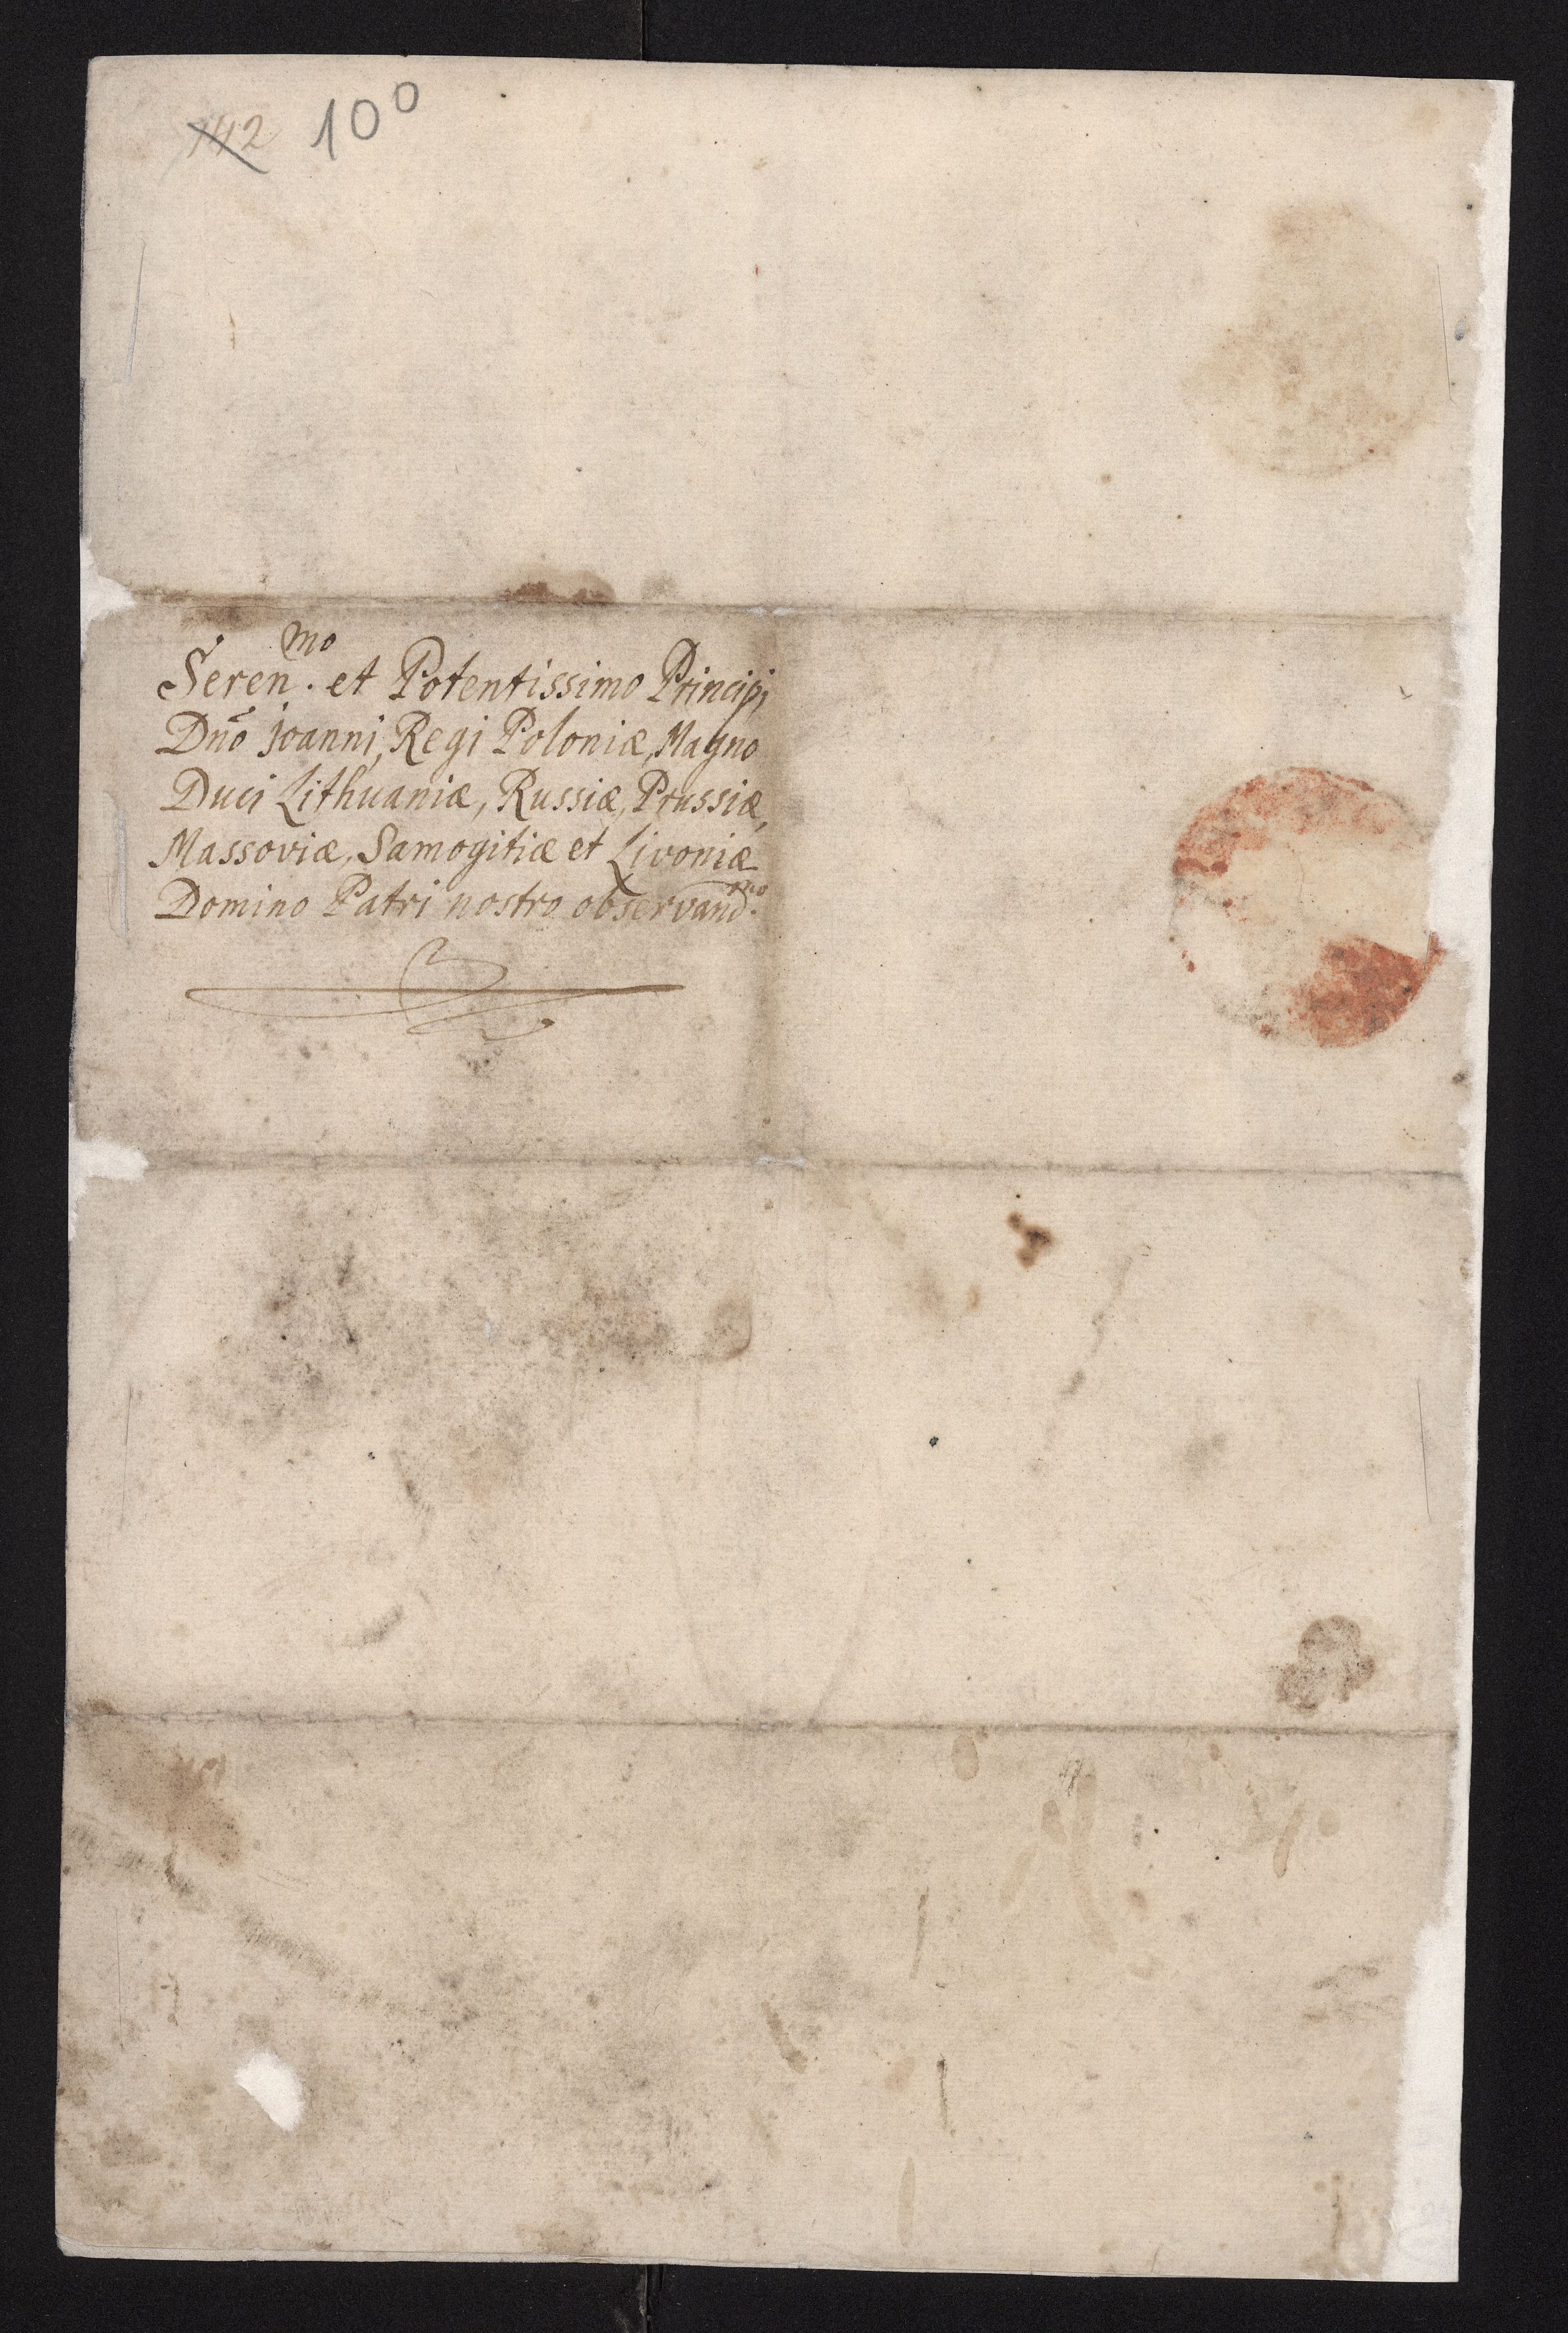 142 100
Seren.mo et Potentissimo Principi
Dño Joanni, Regi Poloniæ, Magno
Duci Lithuaniæ, Russiæ, Prussiæ,
Massoviæ, Samogitiæ et Livoniæ
Domino Patri nostro observand.mo